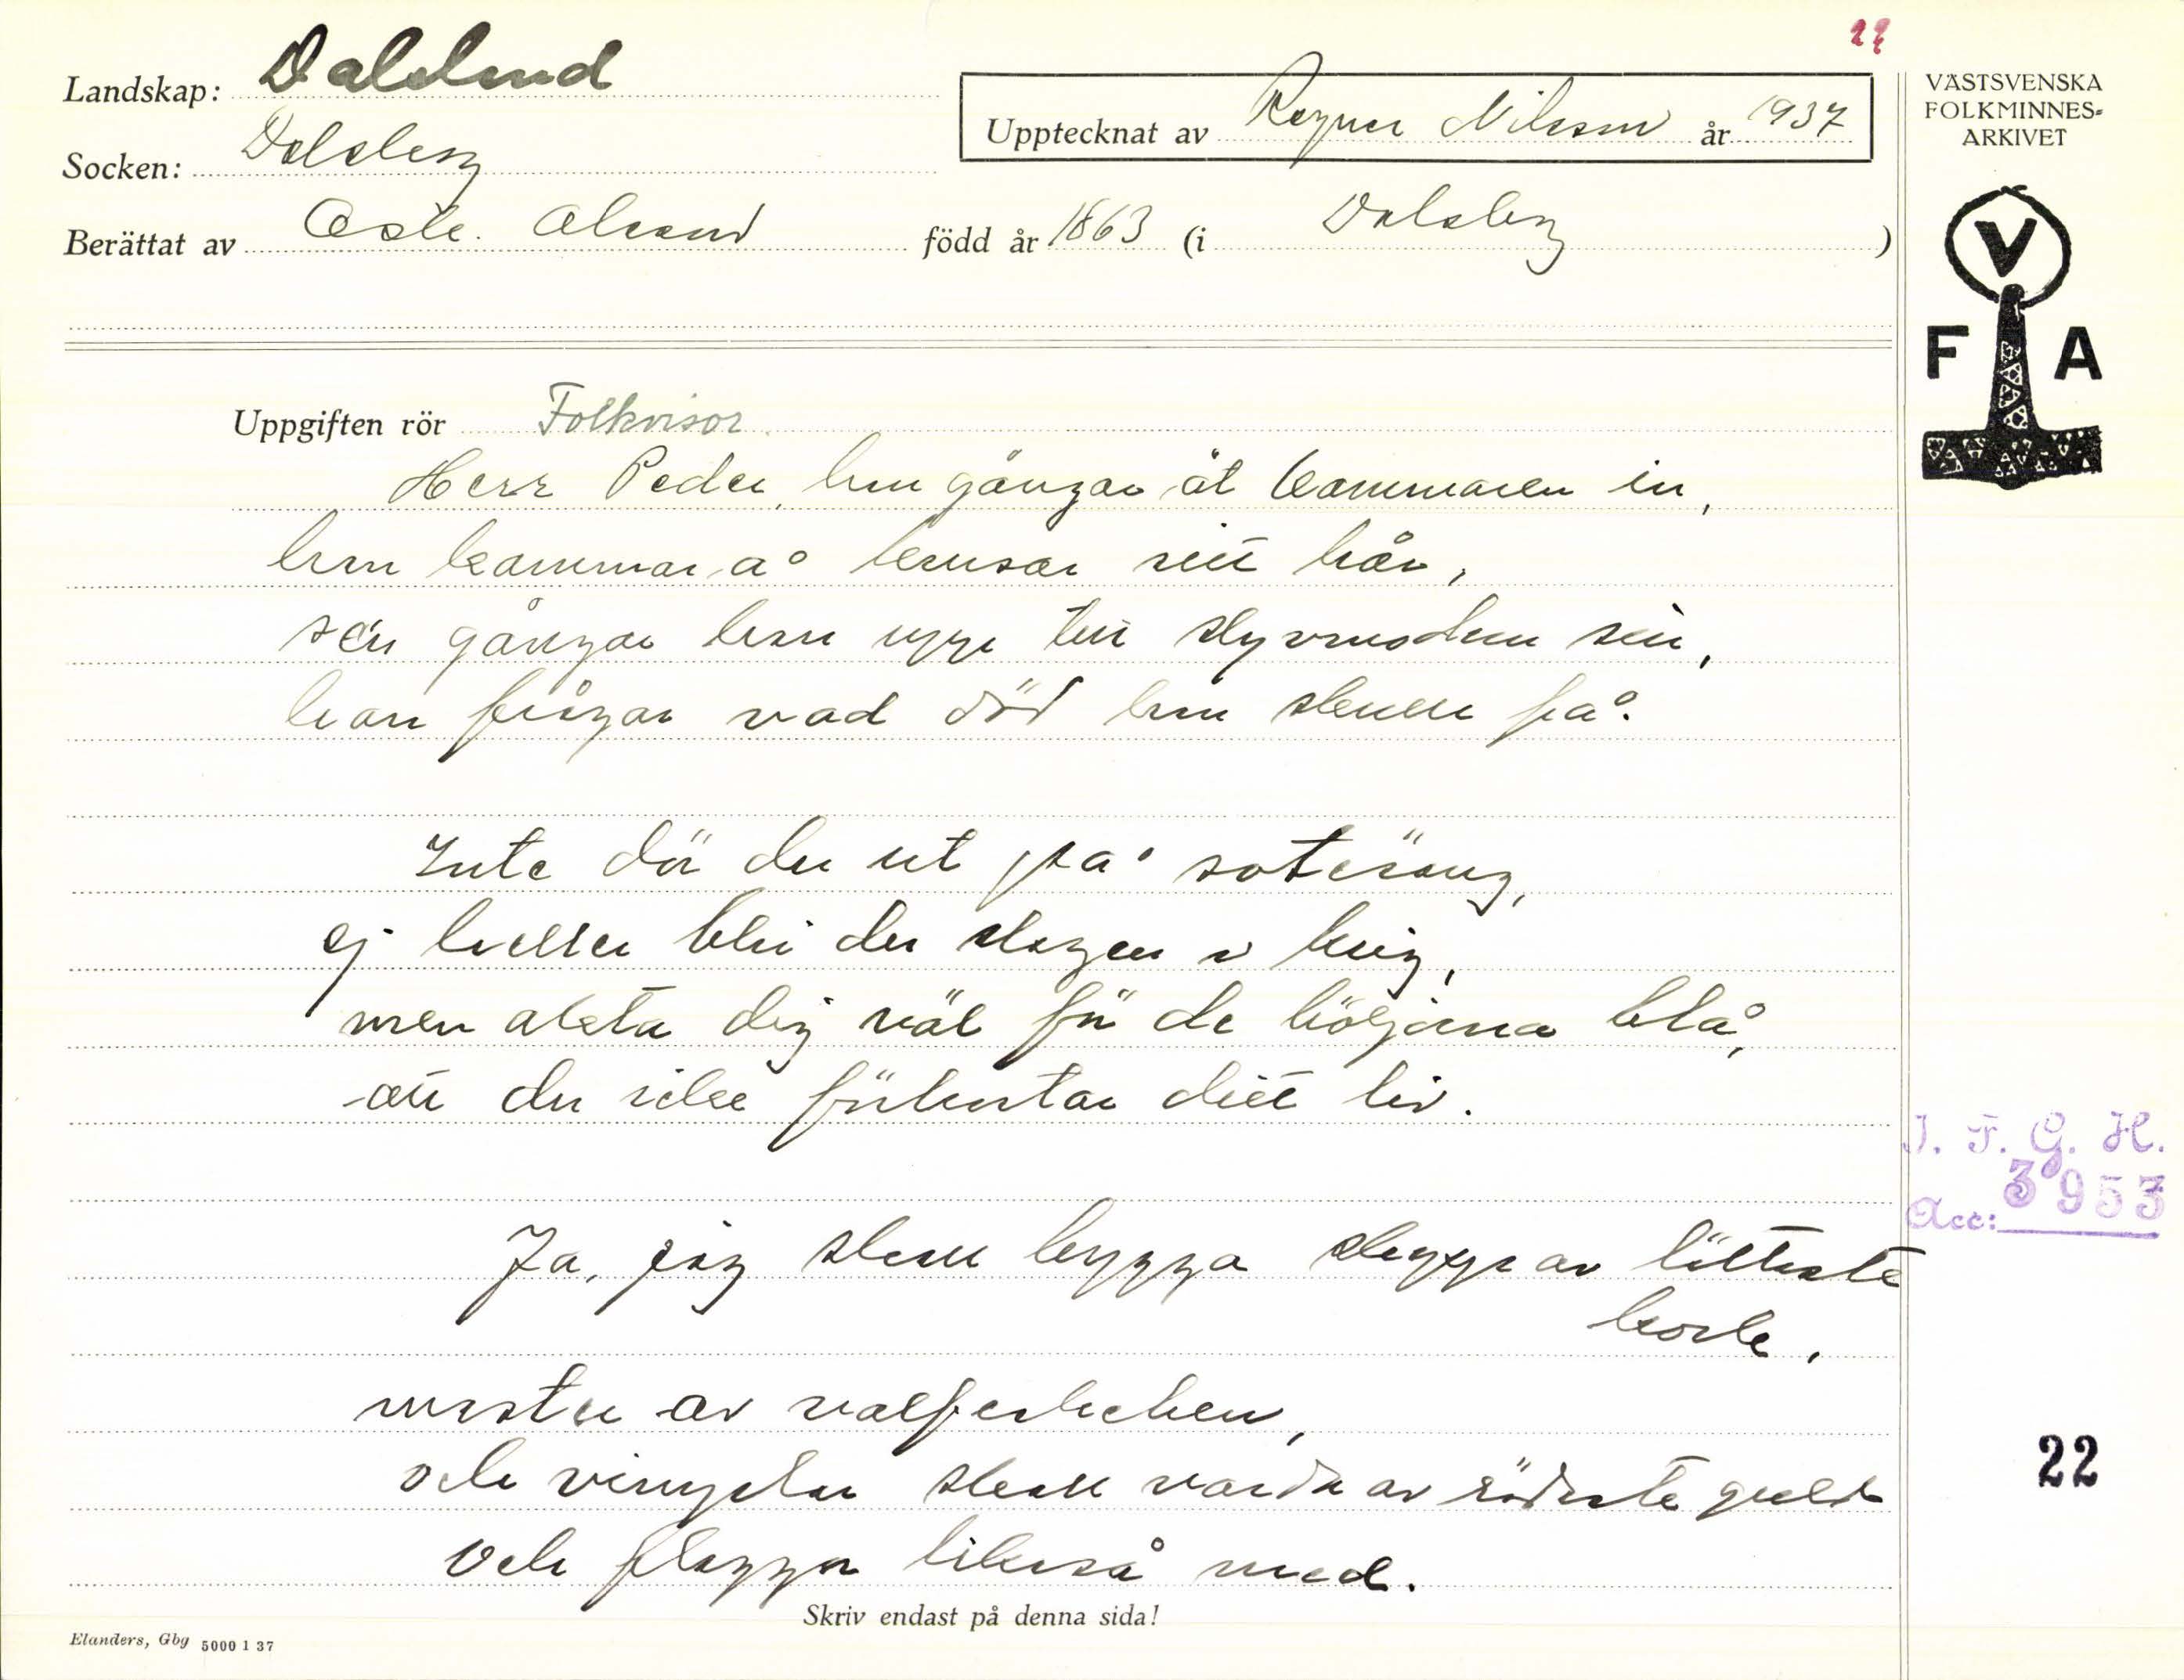 22
Landskap: Dalsland
Upptecknat av Ragnar Nilsson år 1937
Socken: Dalskog
Berättat av Osk. Olsson född år 1863 (i Dalskog)
VÄSTSVENSKA
FOLKMINNES-
ARKIVET
V
F A
Uppgiften rör Folkvisor
Herr Peder, han gångar åt kammaren in,
han kammar å krusar sitt hår,
se'n gångar han upp till styvmodern sin,
han frågar vad död han skulle få.
Inte dör du ut på sotesäng,
ej heller bli du slagen i krig,
men akta dig väl för de böljorna blå,
att du icke förlustar ditt liv.
Ja, jag skall bygga skepp av lättaste
kork,
master av valfiskeben,
och vingelen skall varda av rödaste guld
och flaggan likaså med.
J. F. G. H.
Acc: 3953
22
Skriv endast på denna sida!
Elanders, Gbg 5000 1 37